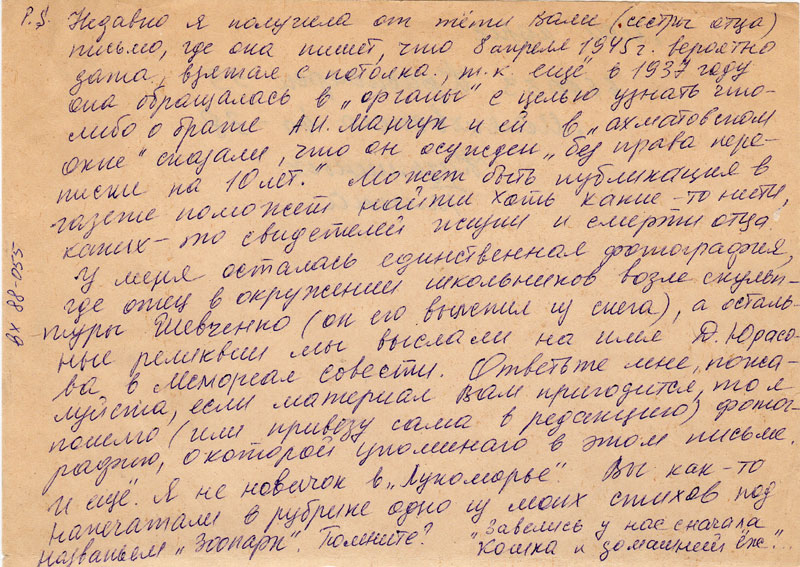 P.S. Недавно я получила от тёти Вали (сестры отца)
письмо, где она пишет, что 8 апреля 1945 г. вероятно
дата, взятая с потолка, т.к ещё в 1937 году
она обращалась в „органы" с целью узнать что-
либо о брате А.И. Манчук и ей в „ахматовском
окне" сказали, что он осужден „без права пере-
писки на 10 лет." Может быть публикация в
газете поможет найти хоть какие-то нити,
каких-то свидетелей жизни и смерти отца.
У меня осталась единственная фотография,
где отец в окружении школьников возле скульп-
туры Шевченко (он его вылепил из снега), а осталь-
ные реликвии мы выслали на имя Д. Юрасо-
ва в Мемориал совести. Ответьте мне, пожа-
луйста, если материал Вам пригодится, то я
пошлю (или привезу сама в редакцию) фотог-
рафию, о которой упоминаю в этом письме.
И ещё. Я не новичок в „Лукоморье". Вы как-то
напечатали в рубрике одно из моих стихов под
названьем „Зоопарк". Помните? „Завелись у нас сначала
кошка и домашний ёж."
вх 88-055